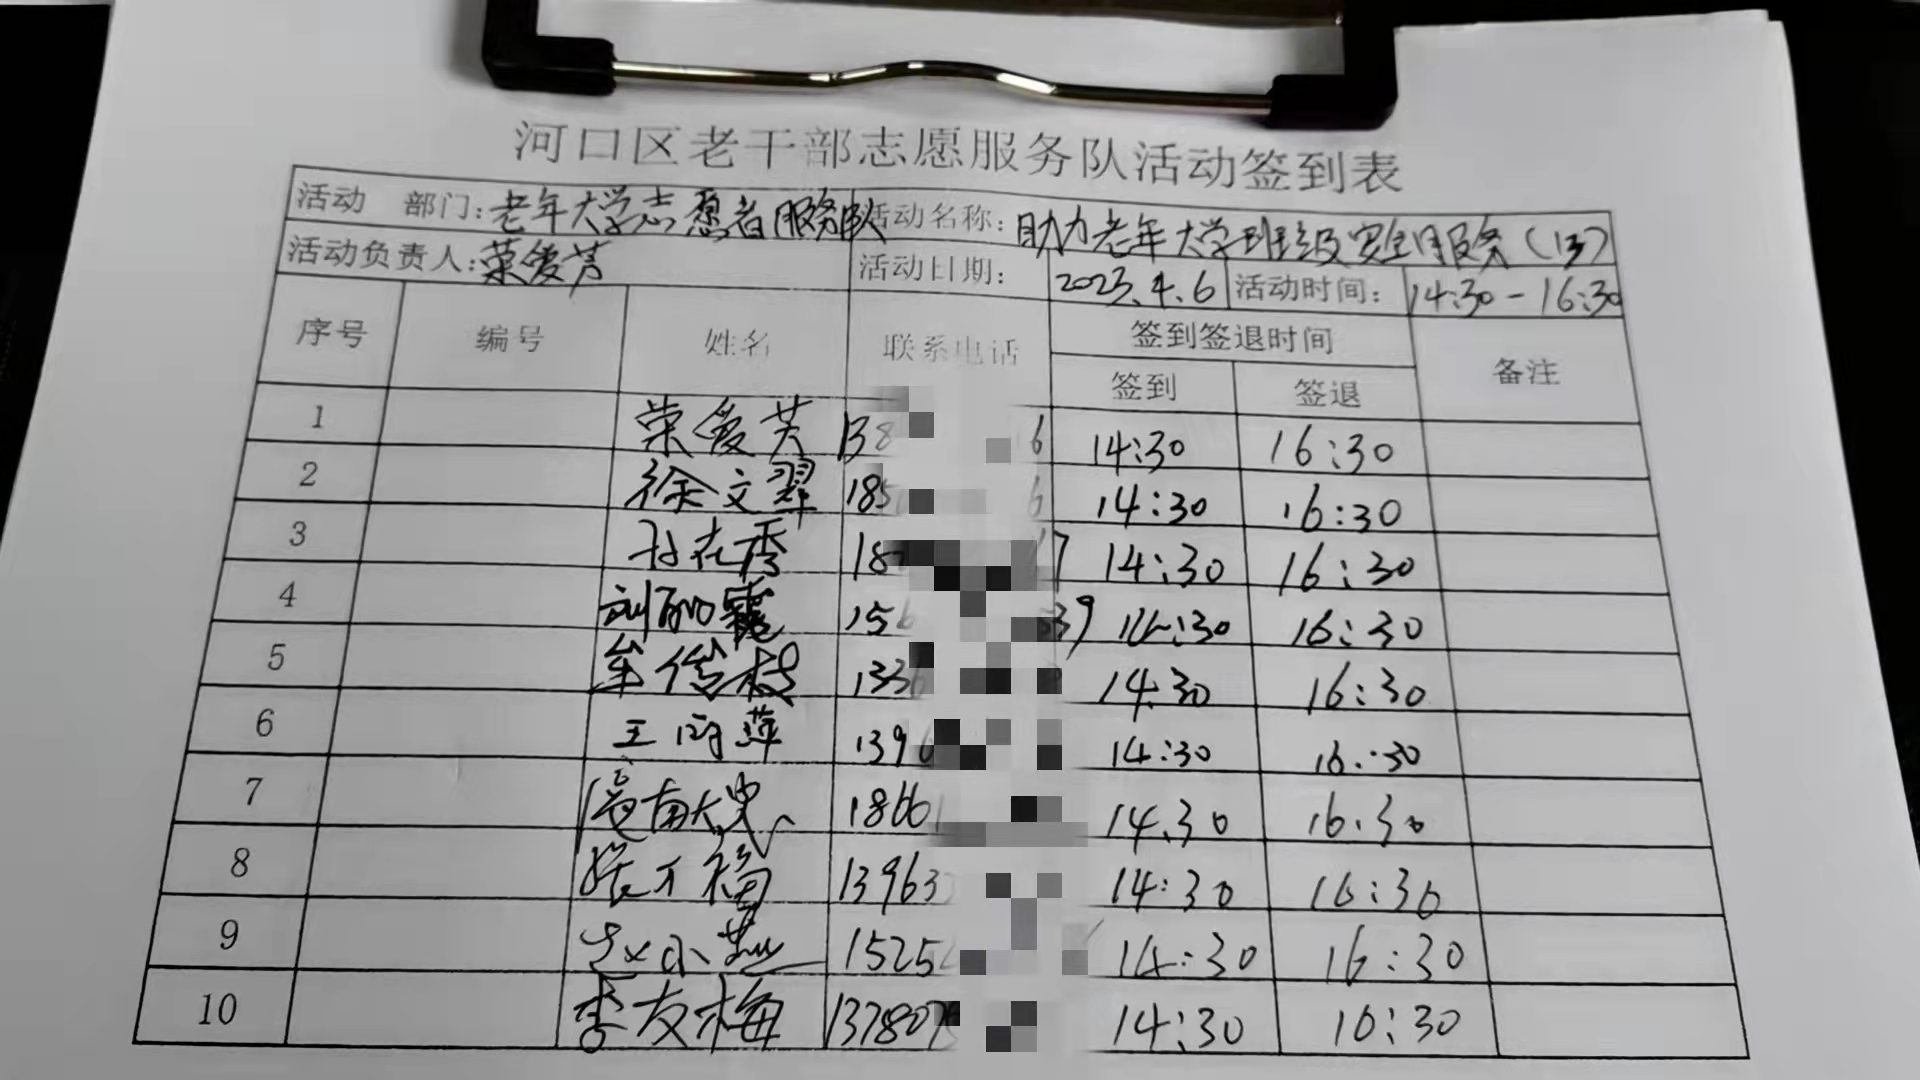 河口区老干部志愿服务队活动签到表
活动 部门: 老年大学志愿者服务队 活动名称: 助力老年大学班级安全服务(13)
活动负责人: 荣爱芳 活动日期: 2023.4.6 活动时间: 14:30-16:30
序号 编号 姓名 联系电话 签到签退时间 备注
签到 签退
1 荣爱芳 138 6 14:30 16:30
2 徐文翠 185 6 14:30 16:30
3 孙花秀 18 17 14:30 16:30
4 156 39 14:30 16:30
5 牟传枝 133 14:30 16:30
6 王 萍 139 14:30 16:30
7 1866 14:30 16:30
8 张才福 13963 14:30 16:30
9 赵小燕 1525 14:30 16:30
10 李友梅 137807 14:30 16:30